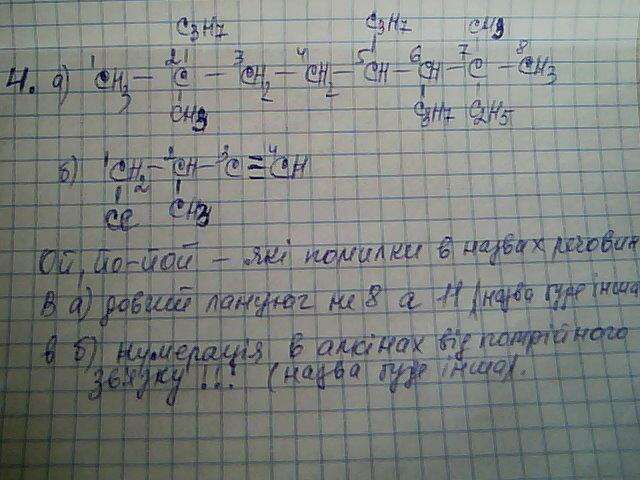 C3H7 C3H7 CH3
4. а) 1CH3 — 2C — 3CH2 — 4CH2 — 5CH — 6CH — 7C — 8CH3
CH3 C3H7 C2H5
б) 1CH2 — 2CH — 3C ≡ 4CH
Cl CH3
Ой, йо-йой – які помилки в назвах речовин
В а) довший ланцюг не 8 а 11 (назва буде інша
в б) нумерація в алкінах від потрійного
звязку!!! (назва буде інша).